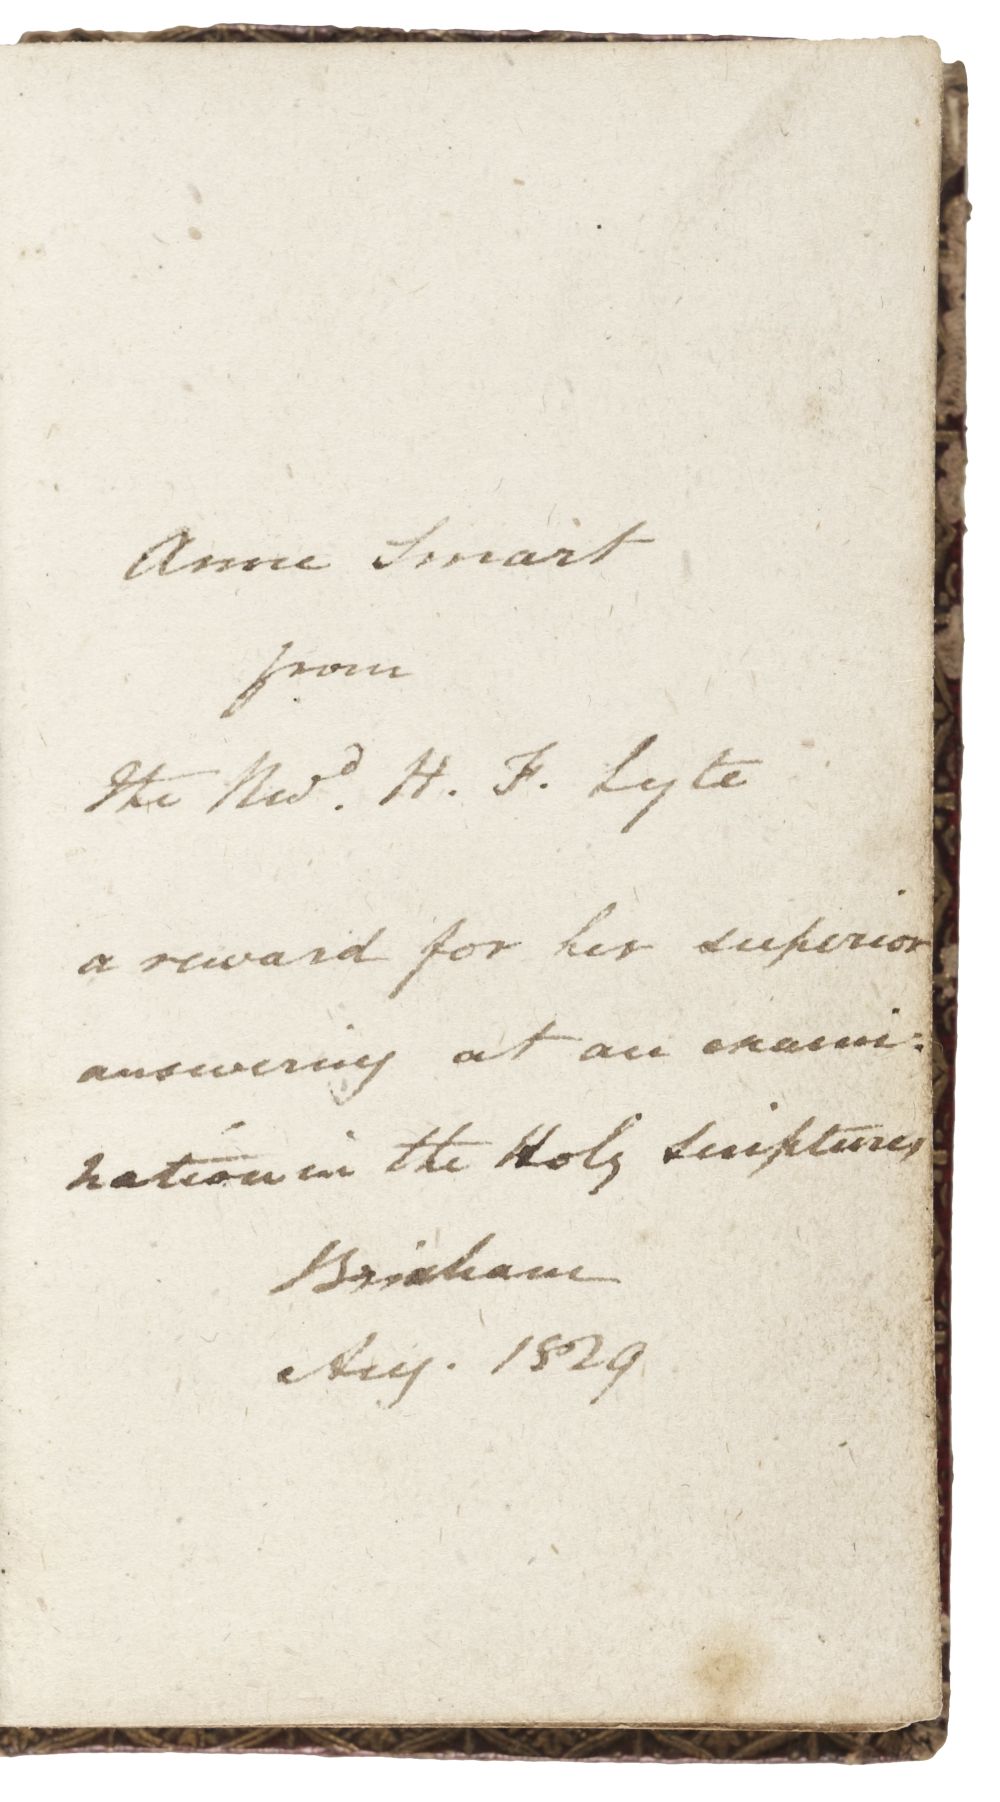 Anne Smart
from
The Revd. H. F. Lyte
a reward for her superior
answering at an exami:
nation in the Holy Scriptures
Brixham
Aug. 1829